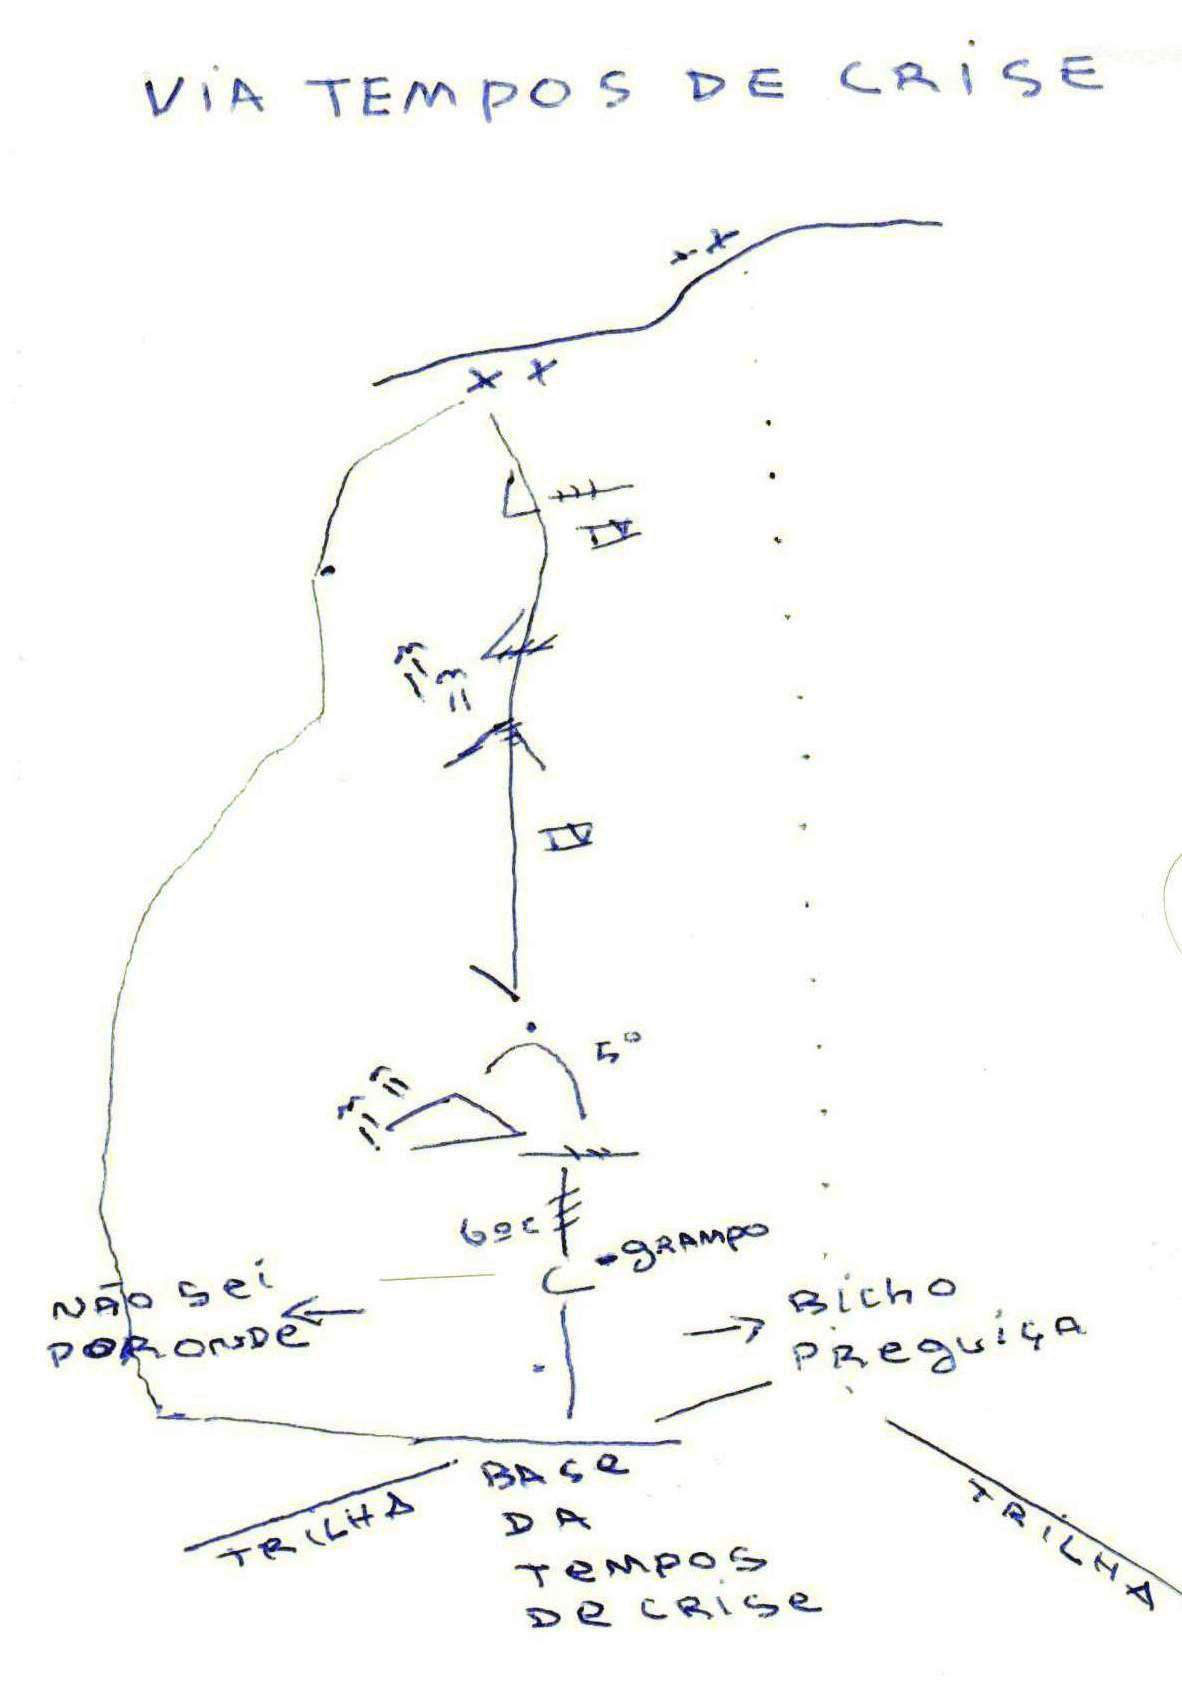 VIA TEMPOS DE CRISE
IV
IV
5º
6ºc
grampo
NÃO Sei
POR ONDe
BICHO
PReguiçA
BASe
DA
TemPOS
De CRISe
TRILHA
TRILHA